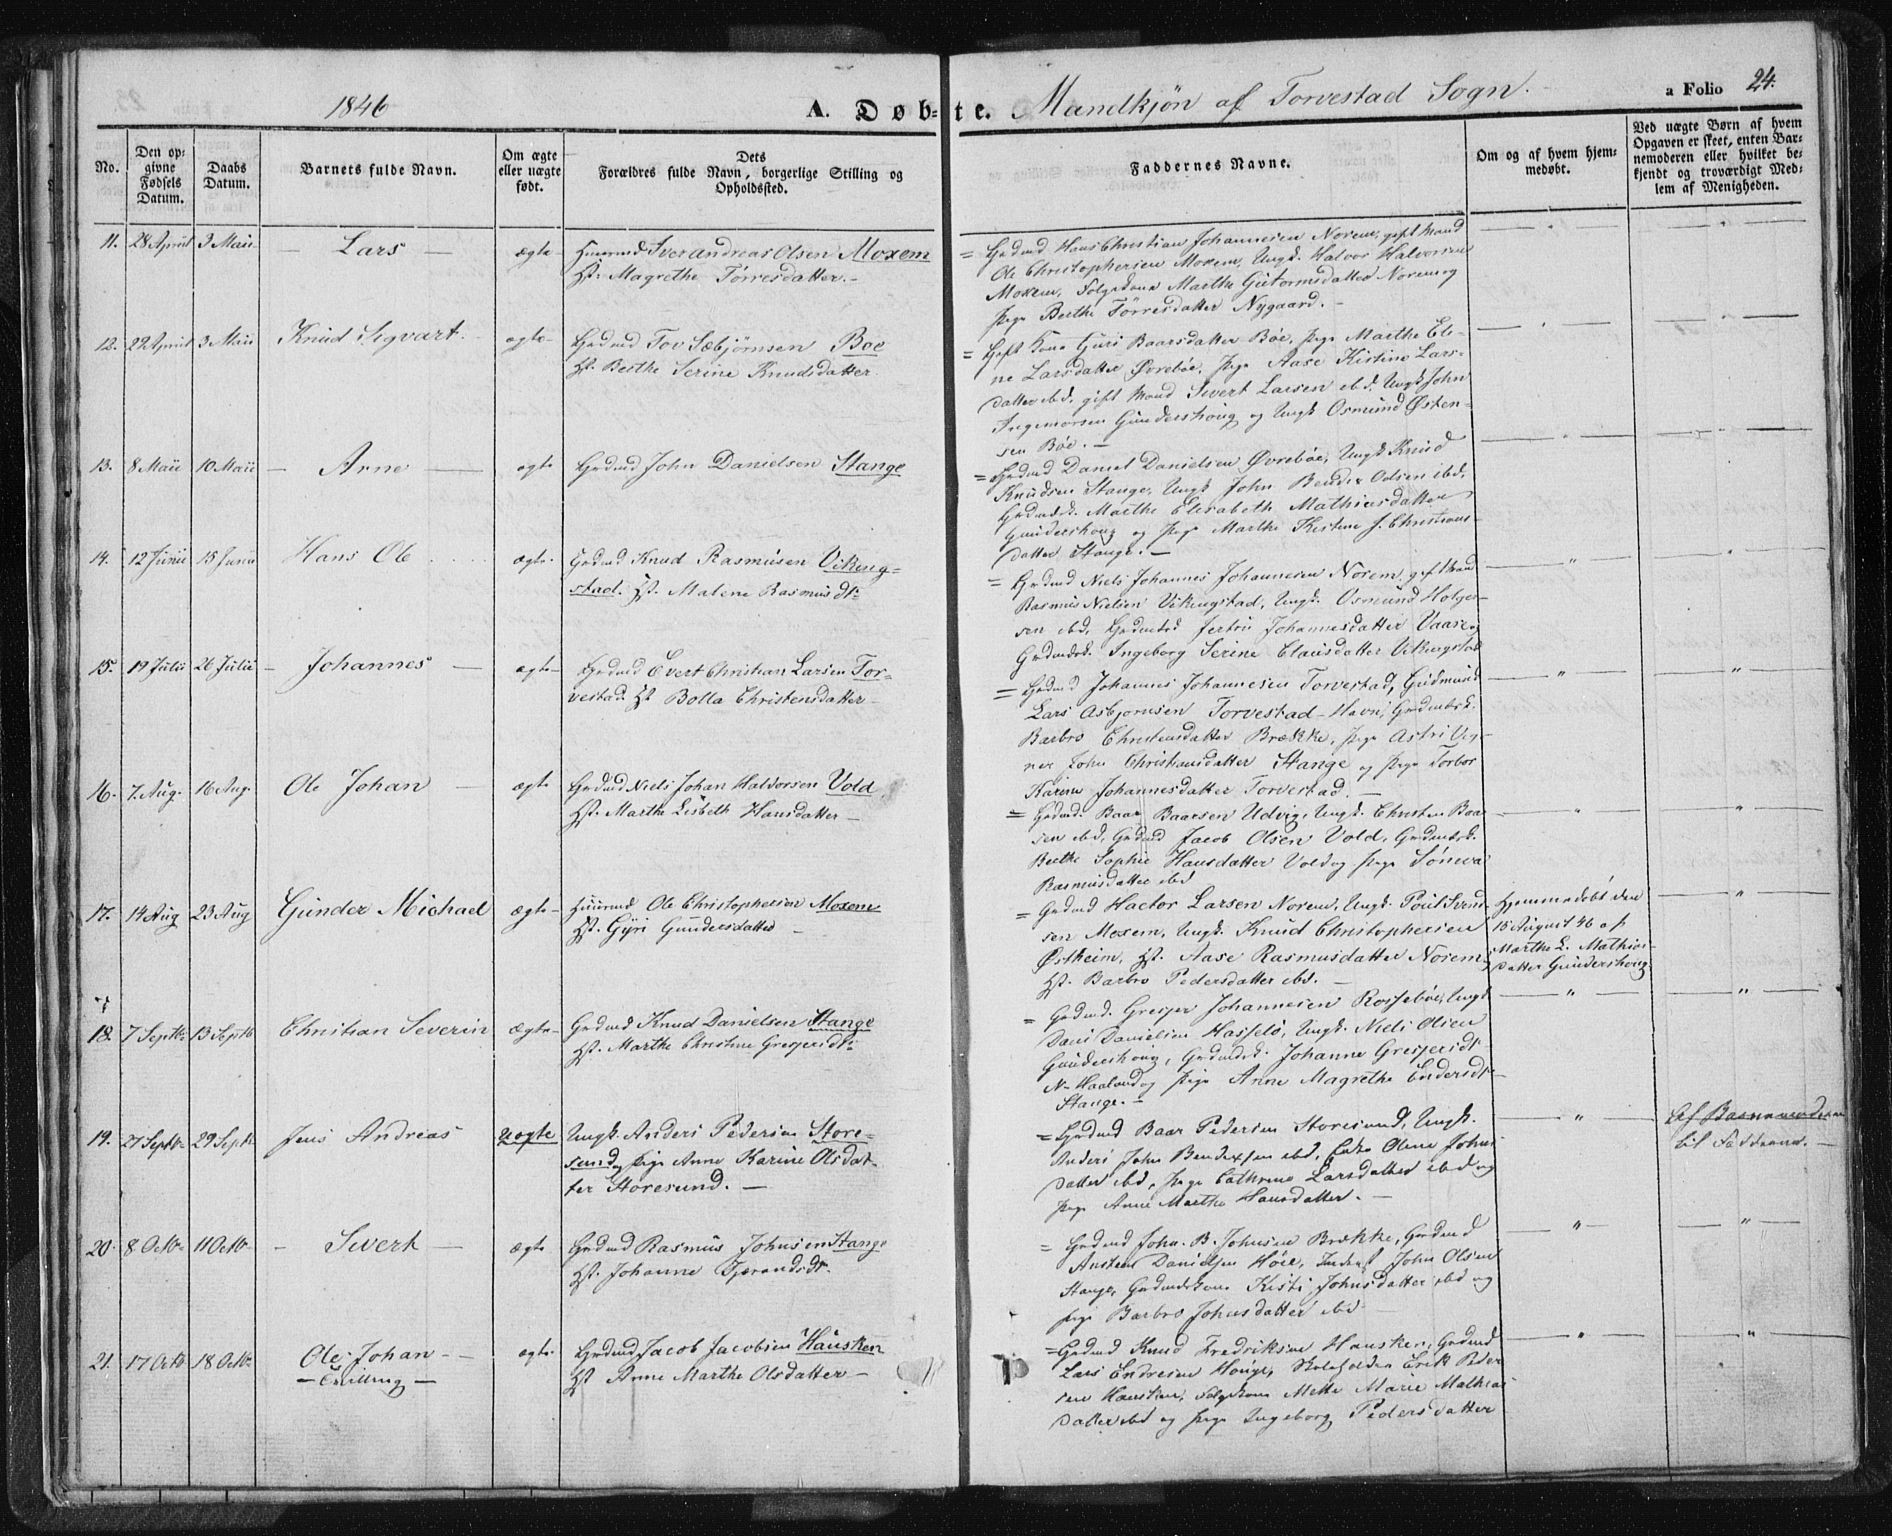 1846
A. Døb=te. Mandkjøn af Torvestad Sogn.
a Folio 24.
No.
Den op=
givne
Fødsels
Datum.
Daabs
Datum.
Barnets fulde Navn.
Om ægte
eller uægte
født.
Dets
Forældres fulde Navn, borgerlige Stilling og
Opholdssted.
Faddernes Navne.
Om og af hvem hjem=
medøbt.
Ved uægte Børn af hvem
Opgaven er skeet, enten Bar=
nemoderen eller hvilket be=
kjendt og troværdigt Med=
lem af Menigheden.
11. 28 April 3 Maii — Lars — ægte
Huusmd Iver Andreas Olsen Moxem
H. Magrethe Tørresdatter. —
= Grdmd Hans Christian Johannesen Norem, gift Mand
Ole Christophersen Moxem, Ungk. Halvor Halvorsen
Moxem, Folgekone Marthe Gutormsdatter Norem og
Pige Berthe Tørresdatter Nygaard. —
12. 22 April 3 Maii Knud Sigvart. ægte
Grdmd Tov Sæbjørnsen Boe
H. Berthe Serine Knudsdatter
= Gift Kone Guri Baarsdatter Böe, Pige Marthe Ele-
ne Larsdatter Øvreböe, Pige Aase Kistine Lars-
datter ibd, gift Mand Sivert Larsen ibd. Ungk John
Ingemorsen Gundershoug og Ungk Osmund Østen-
sen Böe. —
13. 8 Maii 10 Maii — Arne — ægte
Grdmd John Danielsen Stange
= Grdmd Daniel Danielsen Øvreböe, Ungk Knud
Knudsen Stange, Ungk John Bendix Olsen ibd,
Grdmdsk. Marthe Elisabeth Mathiesdatter
Gundershoug og Pige Marthe Kistine J. Christians-
datter Stange. —
14. 12 Junii 15 Junii Hans Ole ægte
Grdmd Knud Rasmusen Viking-
stad. H. Malene Rasmusdtr
= Grdmd Niels Johannes Johannesen Norem, gift Mand
Rasmus Nielsen Vikingstad, Ungk. Osmund Holger-
sen ibd, Grdmdsk Jertru Johannesdatter Vaare og
Grdmdsk. Ingeborg Serine Clausdatter Vikingstad
15. 19 Julii 26 Julii — Johannes — ægte
Grdmd Evert Christian Larsen Tor-
vestad H Bolla Christensdatter —
= Grdmd Johannes Johannesen Torvestad, Gudmund
Lars Asbjornsen Torvestad-Havn, Grdmdsk.
Barbro Christensdatter Brække, Pige Astri
Christiansdatter Stange og Pige Torbor
Karine Johannesdatter Torvestad. —
16. 7. Aug. 16 Aug. Ole Johan — ægte
Grdmd Niels Johan Haldorsen Vold
H. Marthe Lisbeth Hansdatter —
= Grdmd. Baar Baarsen Udvig, Ungk. Christen Baar-
sen ibd, Grdmd Jacob Olsen Vold, Grdmdsk.
Berthe Sophie Hansdatter Vold og Pige Söneva
Rasmusdatter ibd
17. 14 Aug 23 Aug Gunder Michael ægte
Huusmd Ole Christophersen Moxem
H. Gyri Gundersdatter —
= Grdmd Hactor Larsen Norem, Ungk. Poul Svend-
sen Moxem, Ungk. Knud Christophersen
Østheim, H. Aase Rasmusdatter Norem,
H. Barbro Pedersdatter ibd. —
Hjemmedøbt den
15 August 46 af
Marthe E. Mathias-
datter Gundershoug
18. 7 Septbr 13 Septb Christian Severin ægte
Grdmd Knud Danielsen Stange
H. Marthe Christine Gresjersdtr
= Grdmd. Gresper Johannesen Rossebøe, Ungk
Danielsen Hasselö, Ungk. Niels Olsen
Gundershoug, Grdmdsk. Johanne Gresjersdtr
N- Haaland og Pige Anne Magrethe Endersdtr
Stange. —
19. 27 Septbr 29 Septbr Jens Andreas uægte
Ungk. Anders Pedersen Store-
sund og Pige Anne Karine Olsdat-
ter Storesund. —
= Grdmd Baar Pedersen Storesund, Ungk.
Anders John Bendixsen ibd, Enke Olene Johns-
datter ibd, Pige Cathrine Larsdatter ibd og
Pige Anne Marthe Hansdatter. —
Af Barnemoderen
til Fadderne. —
20. 8 Octbr 11 Octbr — Sivert — ægte
Grdmd Rasmus Johnsen Stange
H. Johanne Tjerandsdtr.
= Grdmd John. B. Johnsen Brække, Grdmd
Austen Danielsen Höie, John Olsen
Stange, Grdmdskone Kisti Johnsdatter ibd og
Pige Barbro Johnsdatter ibd
21. 17 Octbr 18 Octbr Ole Johan — ægte
— Tvilling —
Grdmd Jacob Jacobsen Hausken
H Anne Marthe Olsdatter —
= Grdmd Knud Fredriksen Hausken, Grdmd
Lars Endresen Houge, Skoleholder Erik Peder-
sen Hausken, Folgekone Mette Marie Mathias-
datter ibd og Pige Ingeborg Pedersdatter